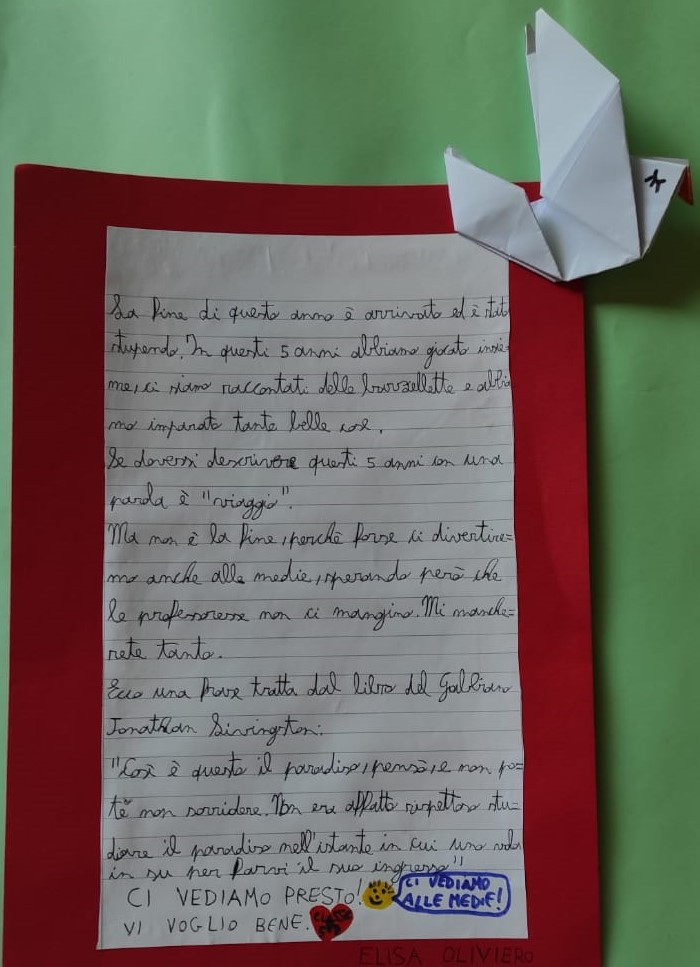 La fine di questo anno è arrivata ed è stato
stupendo. In questi 5 anni abbiamo giocato insie-
me, ci siamo raccontati delle barzellette e abbia
mo imparato tante belle cose.
Se dovessi descrivere questi 5 anni con una
parola è "viaggio".
Ma non è la fine, perchè forse ci divertire=
mo anche alle medie, sperando però che
le professoresse non ci mangino. Mi manche=
rete tanto.
Ecco una frase tratta dal libro del Gabbiano
Jonathan Livingston:
"Così è questo il paradiso, pensò, e non po=
tè non sorridere. Non era affatto rispettoso stu-
diare il paradiso nell'istante in cui uno vola
in su per farvi il suo ingresso"
CI VEDIAMO PRESTO!
CI VEDIAMO
ALLE MEDIE!
VI VOGLIO BENE.
CLASSE
ELISA OLIVIERO